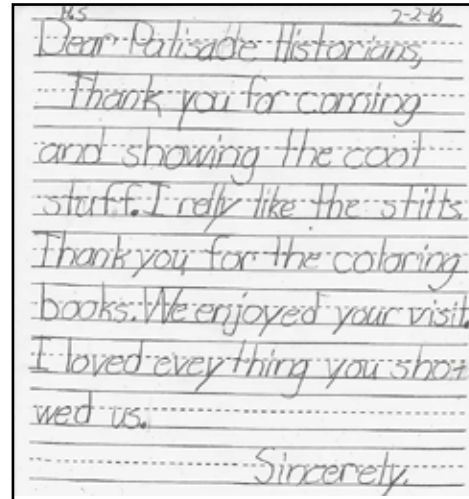 M.S 2-2-16
Dear Palisade Historians,
Thank you for coming
and showing the cool
stuff. I relly like the stilts.
Thank you for the coloring
books. We enjoyed your visit.
I loved evey thing you sho-
wed us.
Sincerely,